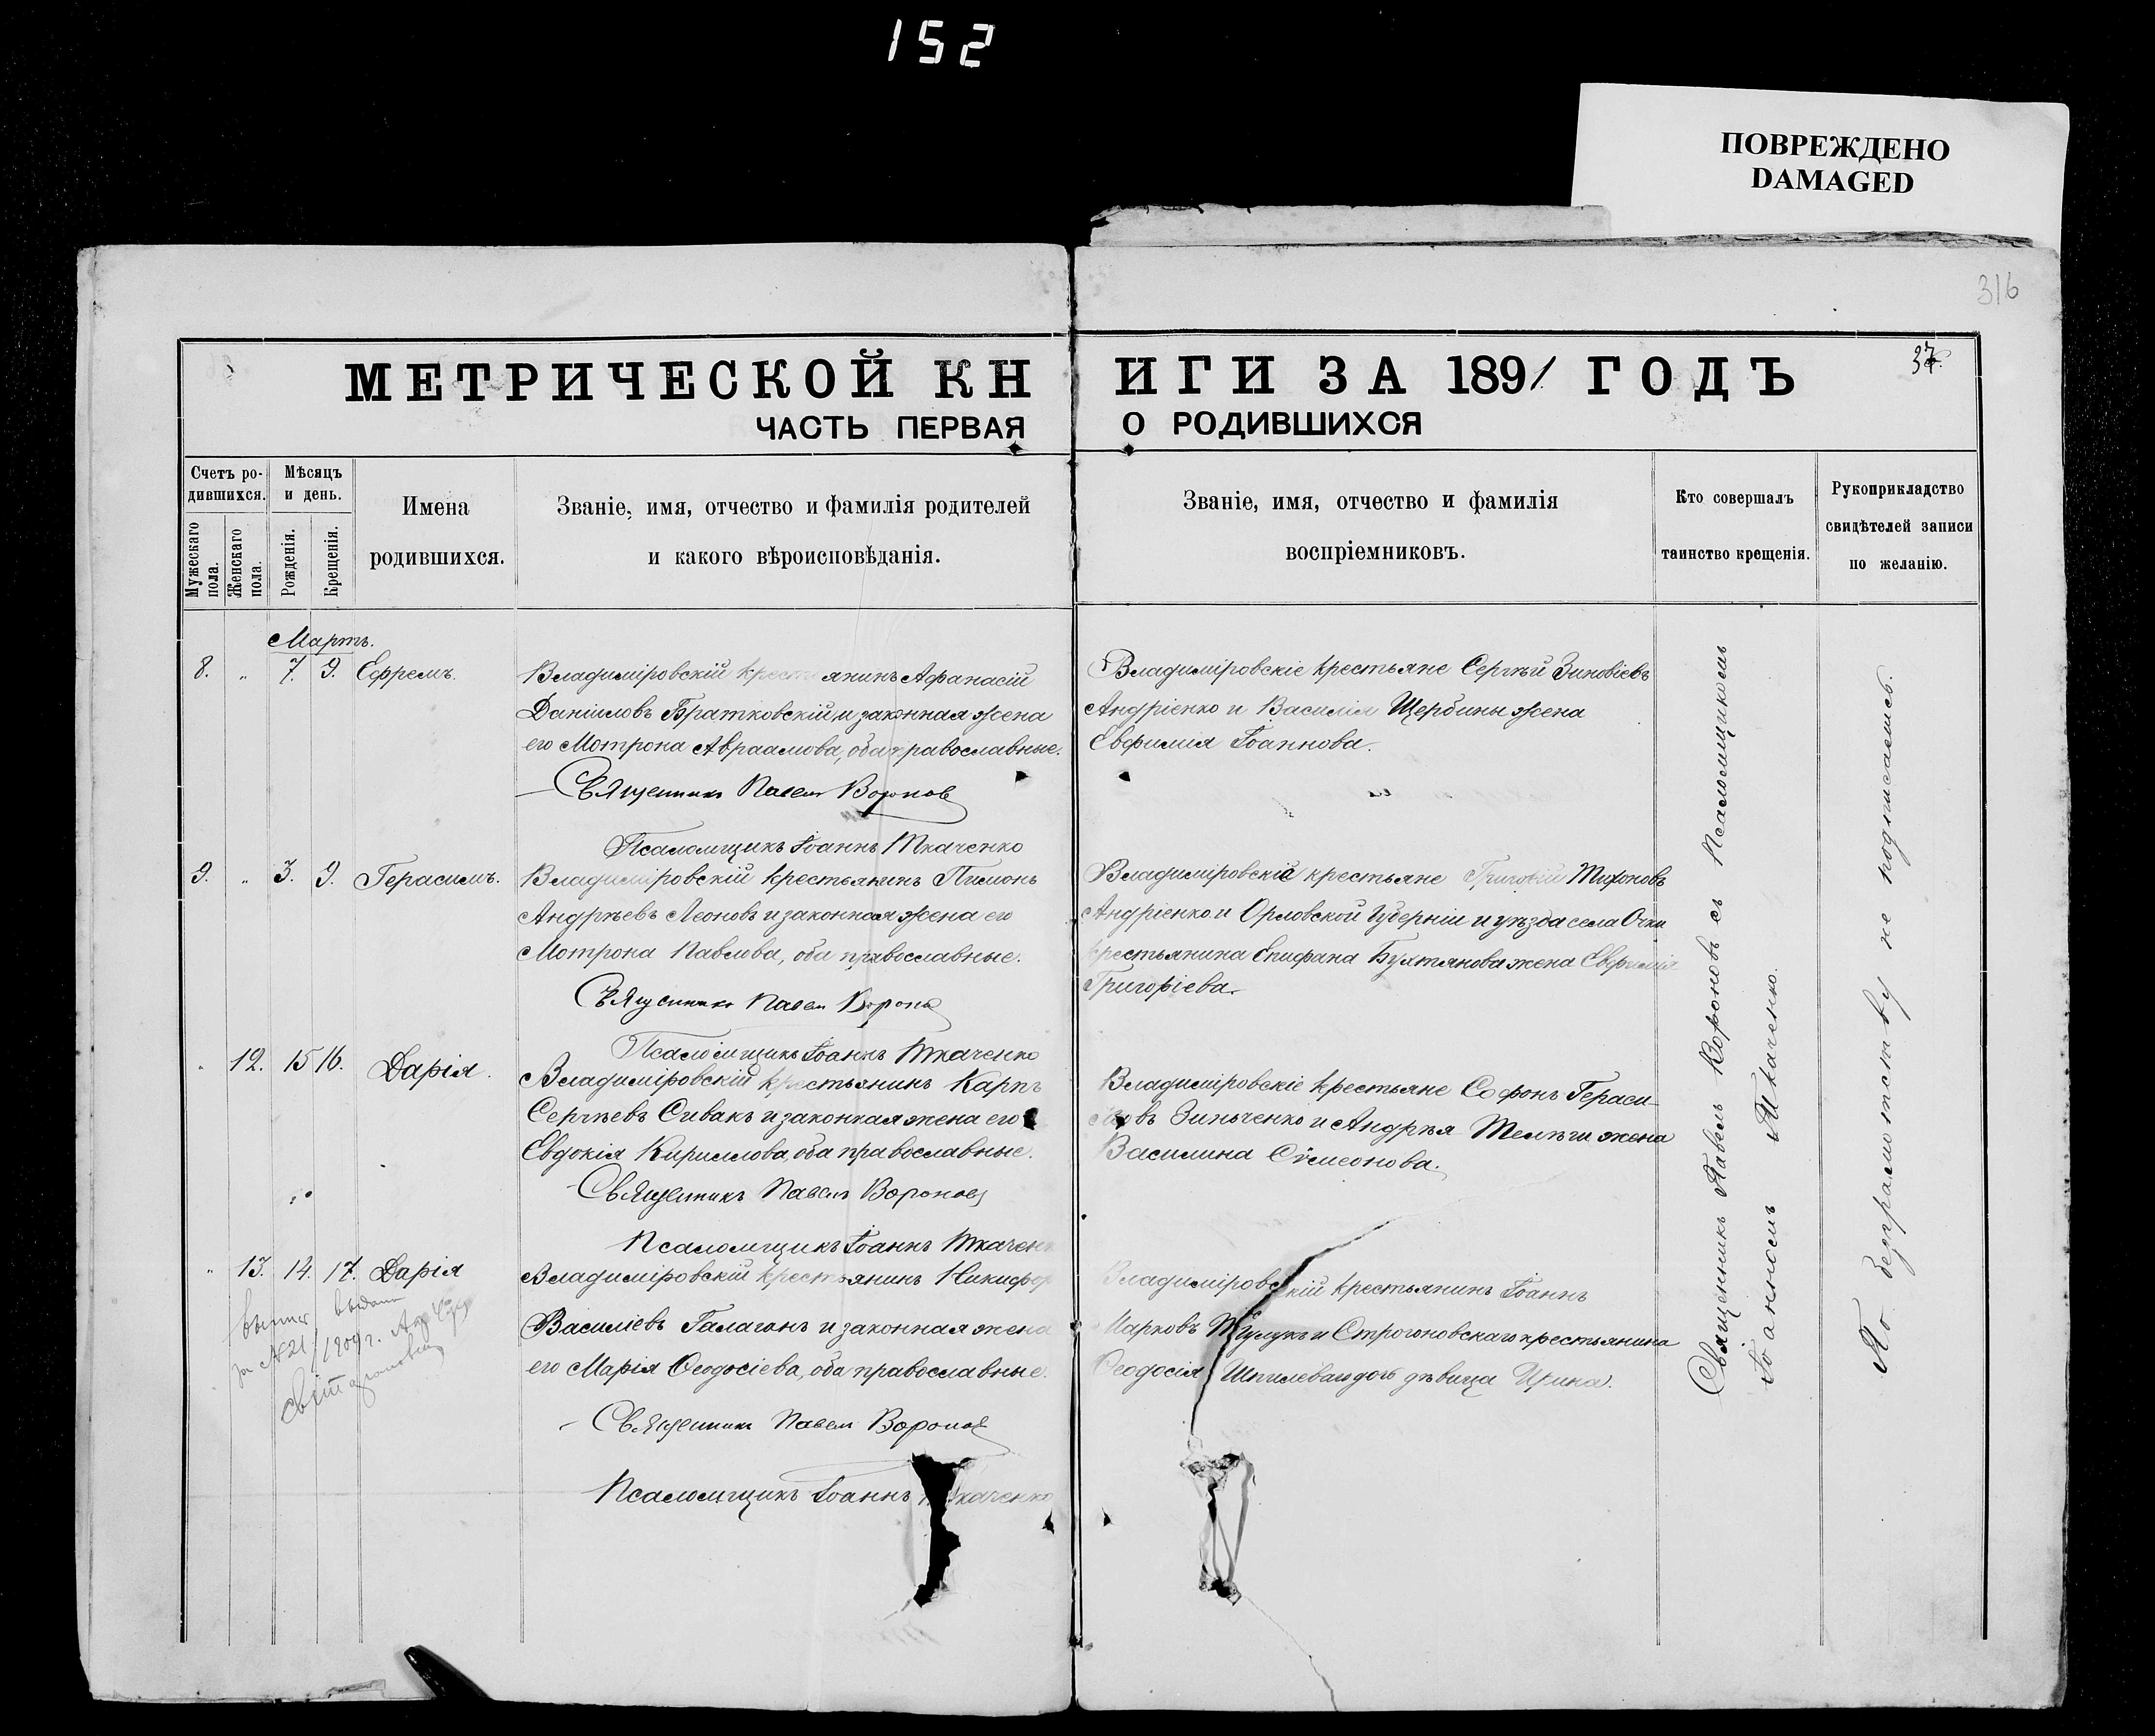 152
ПОВРЕЖДЕНО
DAMAGED
316
МЕТРИЧЕСКОЙ КНИГИ ЗА 1891 ГОДЪ
37.
ЧАСТЬ ПЕРВАЯ О РОДИВШИХСЯ
Счетъ ро-
дившихся.
Мужескаго пола.
Женскаго пола.
Мѣсяцъ
и день.
Рожденія.
Крещенія.
Имена
родившихся.
Званіе, имя, отчество и фамилія родителей
и какого вѣроисповѣданія.
Званіе, имя, отчество и фамилія
воспріемниковъ.
Кто совершалъ
таинство крещенія.
Рукоприкладство
свидѣтелей записи
по желанію.
Мартъ.
8. „ 7. 9. Ефремъ.
Владиміровскій крестьянинъ Афанасій
Даніиловъ Братковскій и законная жена
его Мотрона Авраамова, оба православные.
Священникъ Павелъ Вороновъ
Псаломщикъ Іоаннъ Ткаченко
Владиміровскіе крестьяне Сергѣй Зиновіевъ
Андріенко и Василія Щербины жена
Евфимія Іоаннова.
9. „ 3. 9. Герасимъ.
Владиміровскій крестьянинъ Пимонъ
Андреевъ Леоновъ и законная жена его
Мотрона Павлова, оба православные.
Священникъ Павелъ Вороновъ
Псаломщикъ Іоаннъ Ткаченко
Владиміровскіе крестьяне Григорій Тихоновъ
Андріенко и Орловской Губерніи и уѣзда села
крестьянина Епифана Бухтянова жена Евфимія
Григоріева.
„ 12. 15 16. Дарія.
Владиміровскій крестьянинъ Карпъ
Сергѣевъ Сивакъ и законная жена его
Евдокія Кириллова, оба православные.
Священникъ Павелъ Вороновъ
Псаломщикъ Іоаннъ Ткаченко
Владиміровскіе крестьяне Софонъ Гераси-
мовъ Зинченко и Андрея Телѣги жена
Василина Сѵмеонова.
„ 13. 14. 17. Дарія
Владиміровскій крестьянинъ Никифоръ
Василіевъ Галаганъ и законная жена
его Марія Ѳеодосіева, оба православные.
Священникъ Павелъ Вороновъ
Псаломщикъ Іоаннъ Ткаченко
Владиміровскій крестьянинъ Іоаннъ
Марковъ и Строгоновскаго крестьянина
Ѳеодосія дѣвица Ирина.
выдана
за №21 1909 г.
Священникъ Павелъ Вороновъ съ Псаломщикомъ
Іоанномъ Ткаченко.
По безграмотству не подписались.